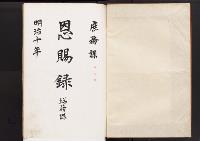 庶務課
恩賜録
明治十年